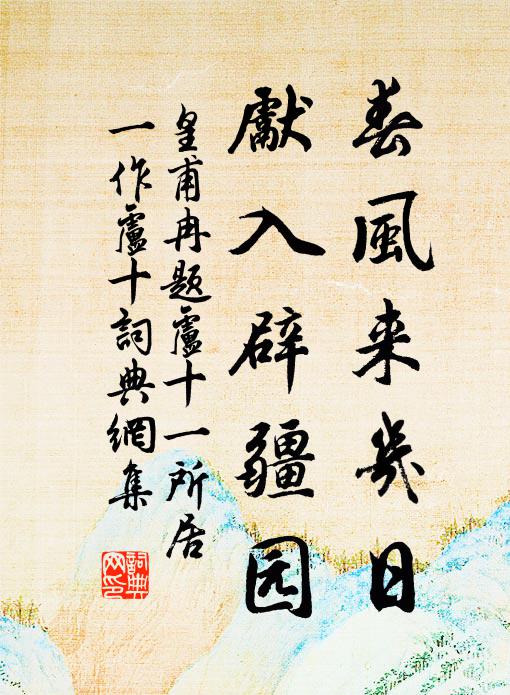 春風来幾日
獻入辟疆园
皇甫冉題盧十一所居
一作盧十詞典網集
詞典
网印